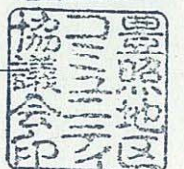 豊照地区
コミュニティ
協議会印